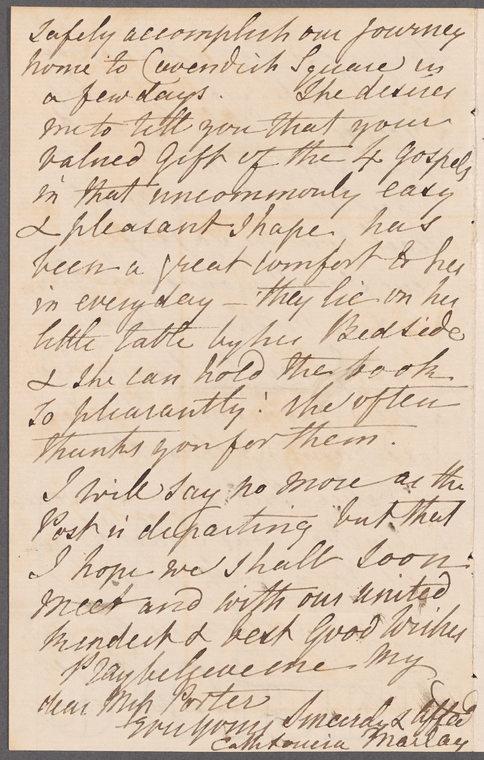 safely accomplish our journey
home to Cavendish Square in
a few days. She desires
me to tell you that your
valued Gift of the 4 Gospels
in that uncommonly easy
& pleasant Shape has
been a great comfort to her
in every day — they lie on her
little table by her Bedside
& she can hold the book
so pleasantly! she often
thanks you for them.
I will say no more as the
Post is departing but that
I hope we shall soon
meet and with our united
kindest & best Good Wishes
Pray believe me My
dear Miss Porter
Yours Sincerely & Affec